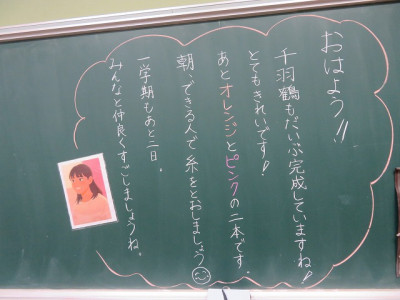 おはよう!!
千羽鶴もだいぶ完成していますね!
とてもきれいです!
あとオレンジとピンクの二本です。
朝、できる人で糸をとおしましょう☺
一学期もあと三日。
みんなと仲良くすごしましょうね。